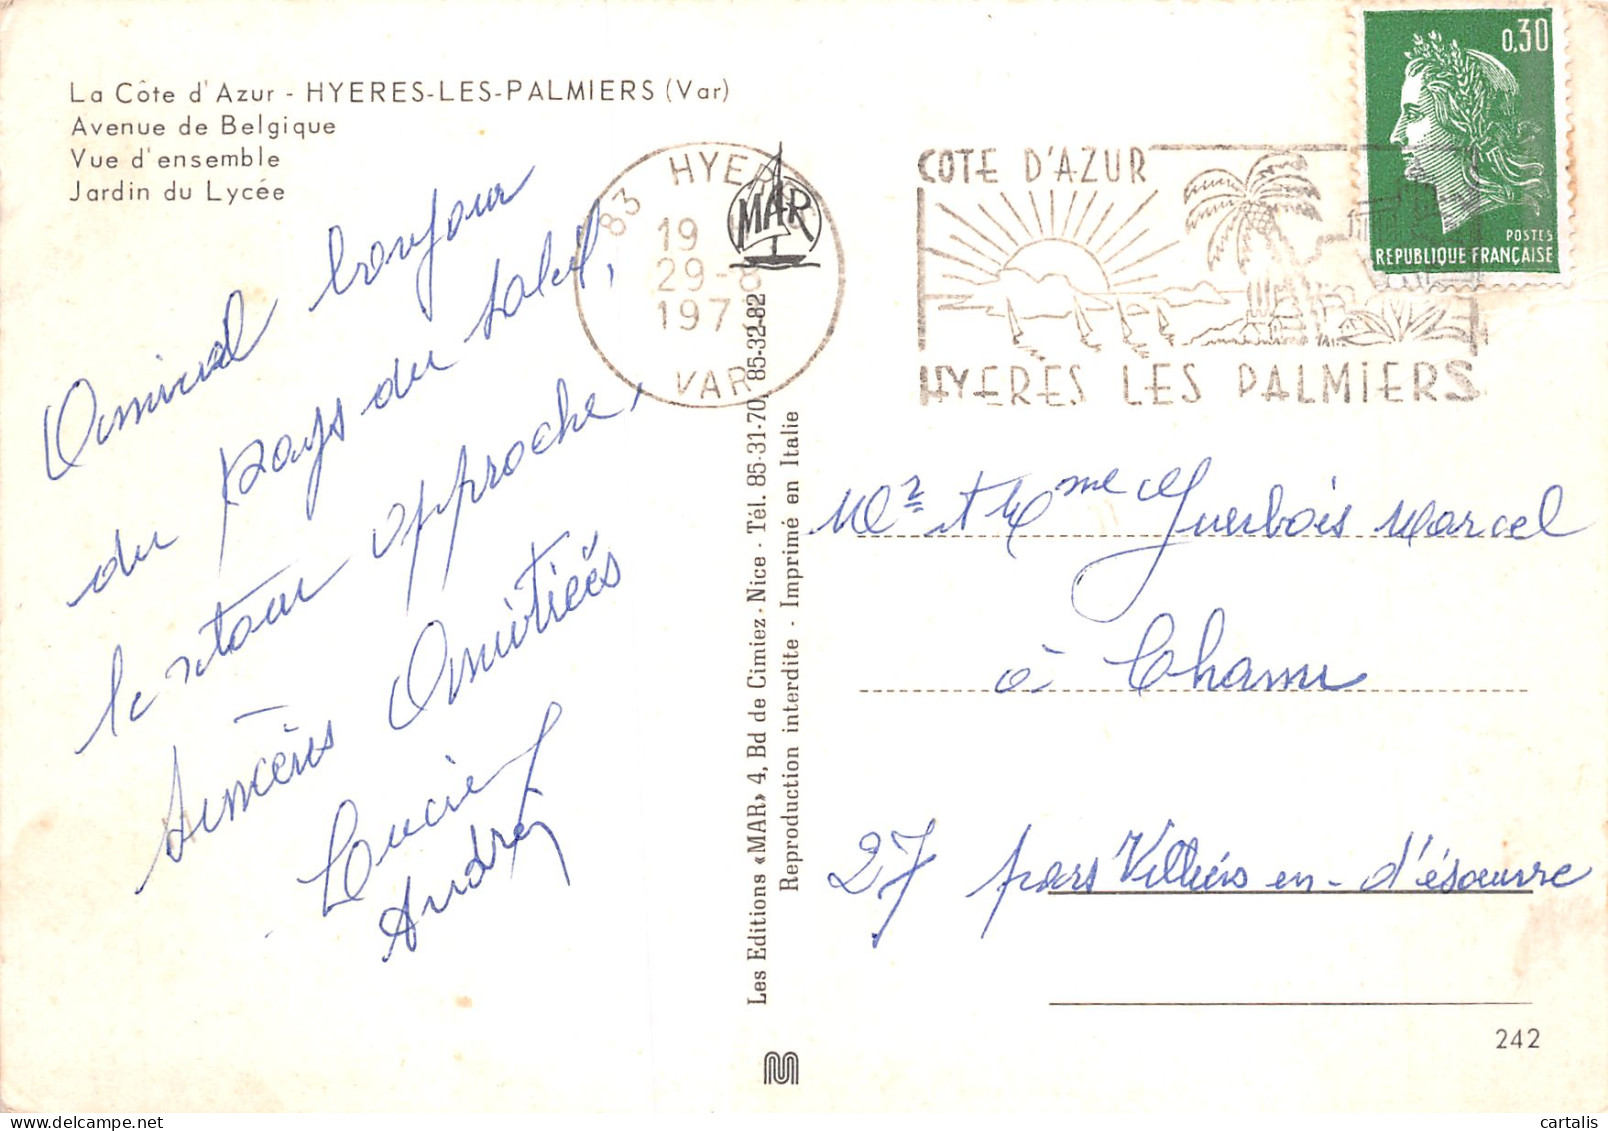 La Côte d'Azur - HYERES-LES-PALMIERS (Var)
Avenue de Belgique
Vue d'ensemble
Jardin du Lycée
Amical bonjour
du pays du soleil,
le retour approche,
Sincères Amitiées
Lucie
André
83 HYERES
19
29-8
197
VAR
MAR
COTE D'AZUR
HYERES LES PALMIERS
0,30
POSTES
REPUBLIQUE FRANÇAISE
Les Editions «MAR» 4, Bd de Cimiez - Nice - Tél. 85-31-70, 85-32-82
Reproduction interdite - Imprimé en Italie
Mr et Mme Guerbois Marcel
à
27 par Villiers en-d'ésoeuvre
242
cartalis sur www.delcampe.net